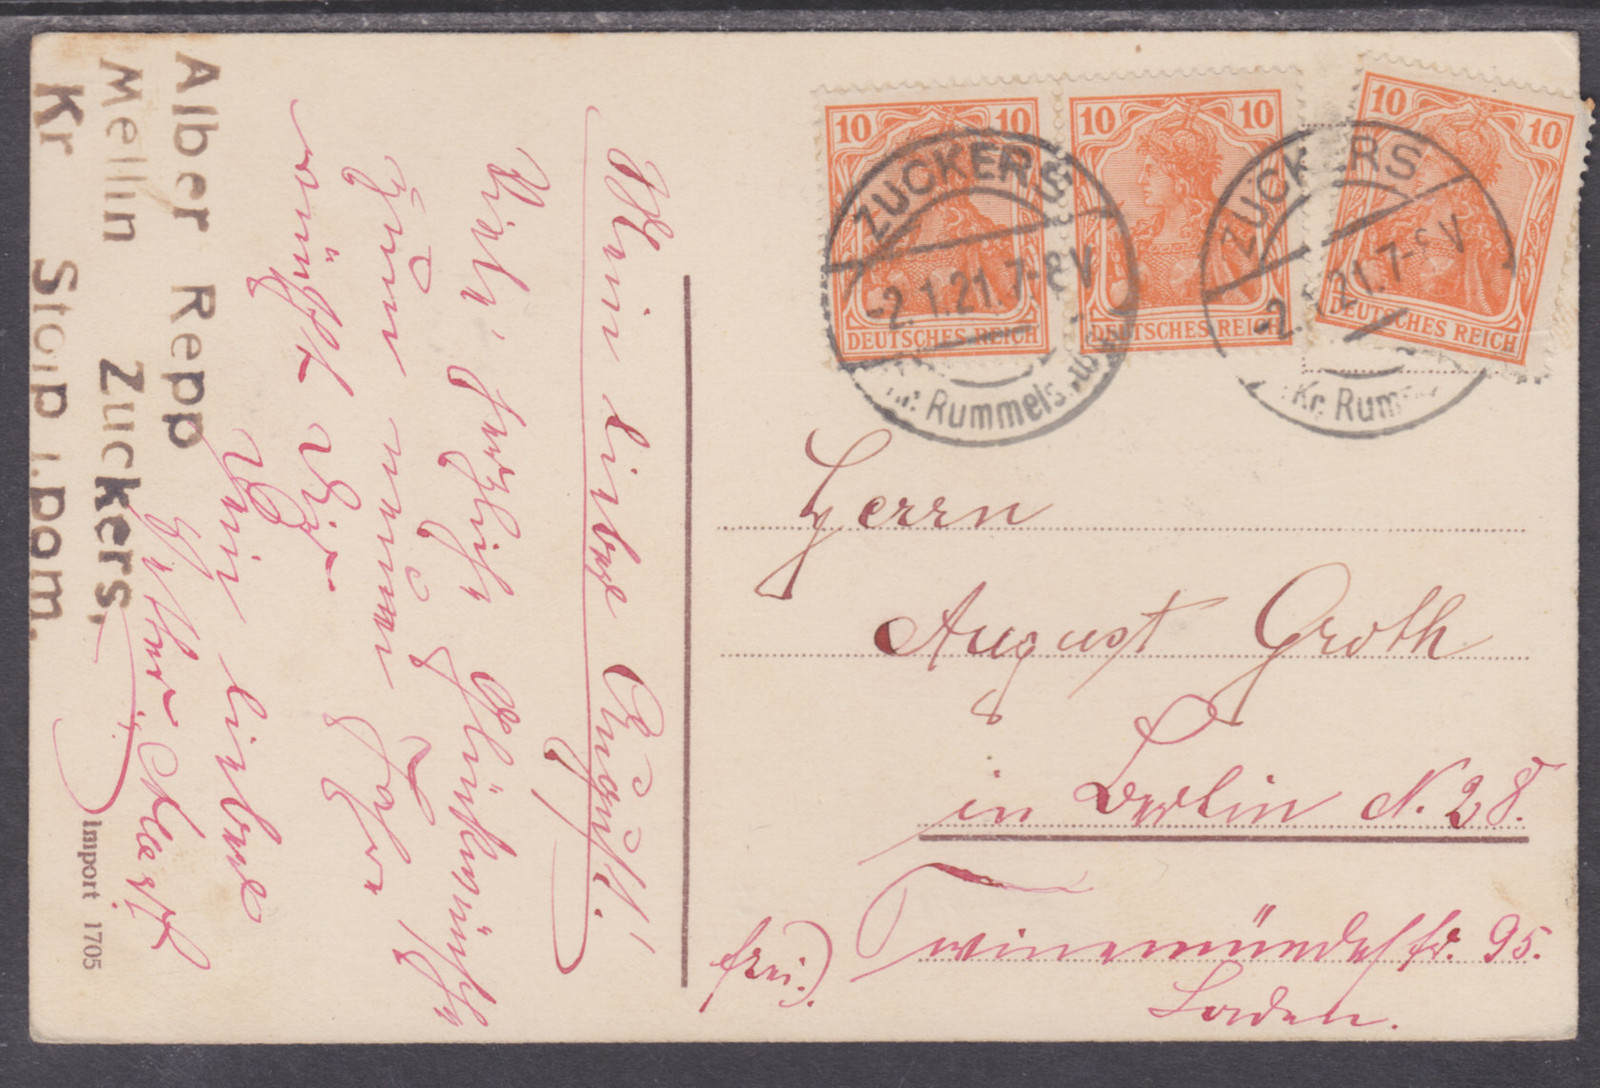 Alber Repp
Mellin Zuckers,
Kr Stolp i. Pom.
Mein lieber August!
Viele herzliche Glückwünsche
zum neuen Jahr
wünscht Dir
Dein lieber
Import 1705
10 10
DEUTSCHES REICH
10 10
DEUTSCHES REICH
10 10
DEUTSCHES REICH
ZUCKERS
-2.1.21.7-8V
Kr. Rummels
ZUCKERS
21.7-8V
Kr. Rum
Herrn
August Groth
in Berlin N. 28.
Swinemünderstr. 95.
frei.) Laden.